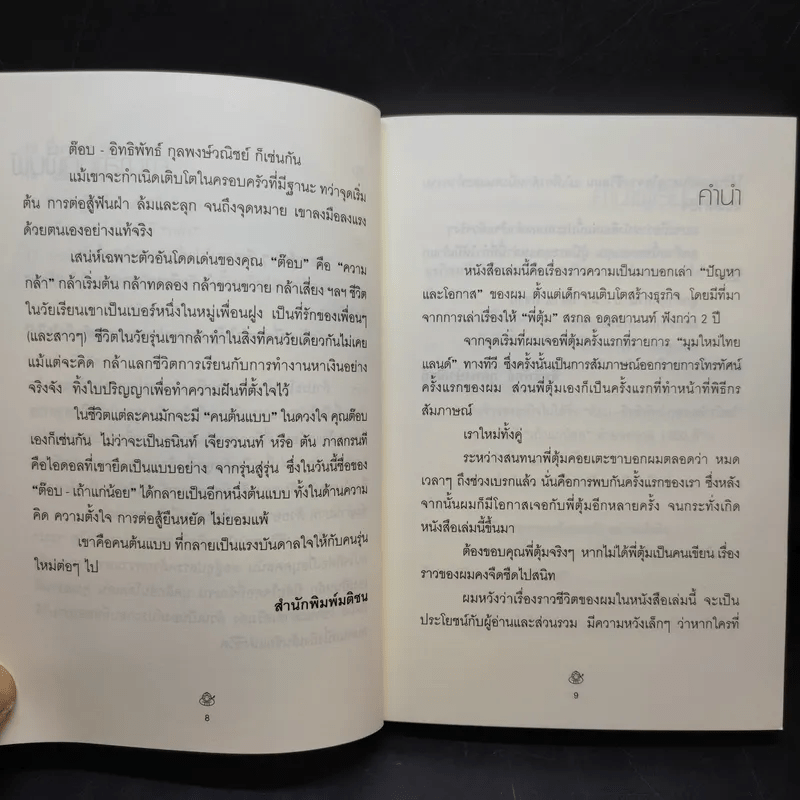 ต๊อบ - อิทธิพัทธ์ กุลพงษ์วณิชย์ ก็เช่นกัน
แม้เขาจะกำเนิดเติบโตในครอบครัวที่มีฐานะ ทว่าจุดเริ่ม
ต้น การต่อสู้ฟันฝ่า ล้มและลุก จนถึงจุดหมาย เขาลงมือลงแรง
ด้วยตนเองอย่างแท้จริง
เสน่ห์เฉพาะตัวอันโดดเด่นของคุณ "ต๊อบ" คือ "ความ
กล้า" กล้าเริ่มต้น กล้าทดลอง กล้าขวนขวาย กล้าเสี่ยง ฯลฯ ชีวิต
ในวัยเรียนเขาเป็นเบอร์หนึ่งในหมู่เพื่อนฝูง เป็นที่รักของเพื่อนๆ
(และสาวๆ) ชีวิตในวัยรุ่นเขากล้าทำในสิ่งที่คนวัยเดียวกันไม่เคย
แม้แต่จะคิด กล้าแลกชีวิตการเรียนกับการทำงานหาเงินอย่าง
จริงจัง ทิ้งใบปริญญาเพื่อทำความฝันที่ตั้งใจไว้
ในชีวิตแต่ละคนมักจะมี "คนต้นแบบ" ในดวงใจ คุณต๊อบ
เองก็เช่นกัน ไม่ว่าจะเป็นธนินท์ เจียรวนนท์ หรือ ตัน ภาสกรนที
คือไอดอลที่เขายึดเป็นแบบอย่าง จากรุ่นสู่รุ่น ซึ่งในวันนี้ชื่อของ
"ต๊อบ - เถ้าแก่น้อย" ได้กลายเป็นอีกหนึ่งต้นแบบ ทั้งในด้านความ
คิด ความตั้งใจ การต่อสู้ยืนหยัด ไม่ยอมแพ้
เขาคือคนต้นแบบ ที่กลายเป็นแรงบันดาลใจให้กับคนรุ่น
ใหม่ต่อๆ ไป
สำนักพิมพ์มติชน
8
คำนำ
หนังสือเล่มนี้คือเรื่องราวความเป็นมาบอกเล่า "ปัญหา
และโอกาส" ของผม ตั้งแต่เด็กจนเติบโตสร้างธุรกิจ โดยมีที่มา
จากการเล่าเรื่องให้ "พี่ตุ้ม" สรกล อดุลยานนท์ ฟังกว่า 2 ปี
จากจุดเริ่มที่ผมเจอพี่ตุ้มครั้งแรกที่รายการ "มุมใหม่ไทย
แลนด์" ทางทีวี ซึ่งครั้งนั้นเป็นการสัมภาษณ์ออกรายการโทรทัศน์
ครั้งแรกของผม ส่วนพี่ตุ้มเองก็เป็นครั้งแรกที่ทำหน้าที่พิธีกร
สัมภาษณ์
เราใหม่ทั้งคู่
ระหว่างสนทนาพี่ตุ้มคอยเตะขาบอกผมตลอดว่า หมด
เวลาๆ ถึงช่วงเบรกแล้ว นั่นคือการพบกันครั้งแรกของเรา ซึ่งหลัง
จากนั้นผมก็มีโอกาสเจอกับพี่ตุ้มอีกหลายครั้ง จนกระทั่งเกิด
หนังสือเล่มนี้ขึ้นมา
ต้องขอบคุณพี่ตุ้มจริงๆ หากไม่ได้พี่ตุ้มเป็นคนเขียน เรื่อง
ราวของผมคงจืดชืดไปสนิท
ผมหวังว่าเรื่องราวชีวิตของผมในหนังสือเล่มนี้ จะเป็น
ประโยชน์กับผู้อ่านและส่วนรวม มีความหวังเล็กๆ ว่าหากใครที่
9